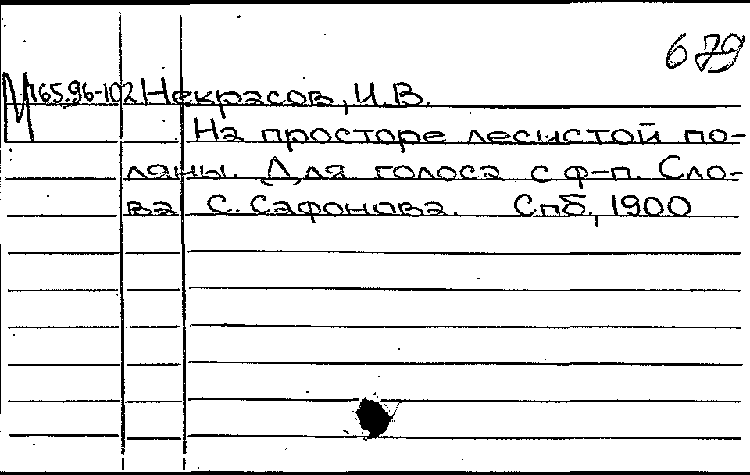 679
М165.96-102 Некрасов, И.В.
На просторе лесистой по-
ляны. Для голоса с ф-п. Сло-
ва С. Сафонова. Спб., 1900